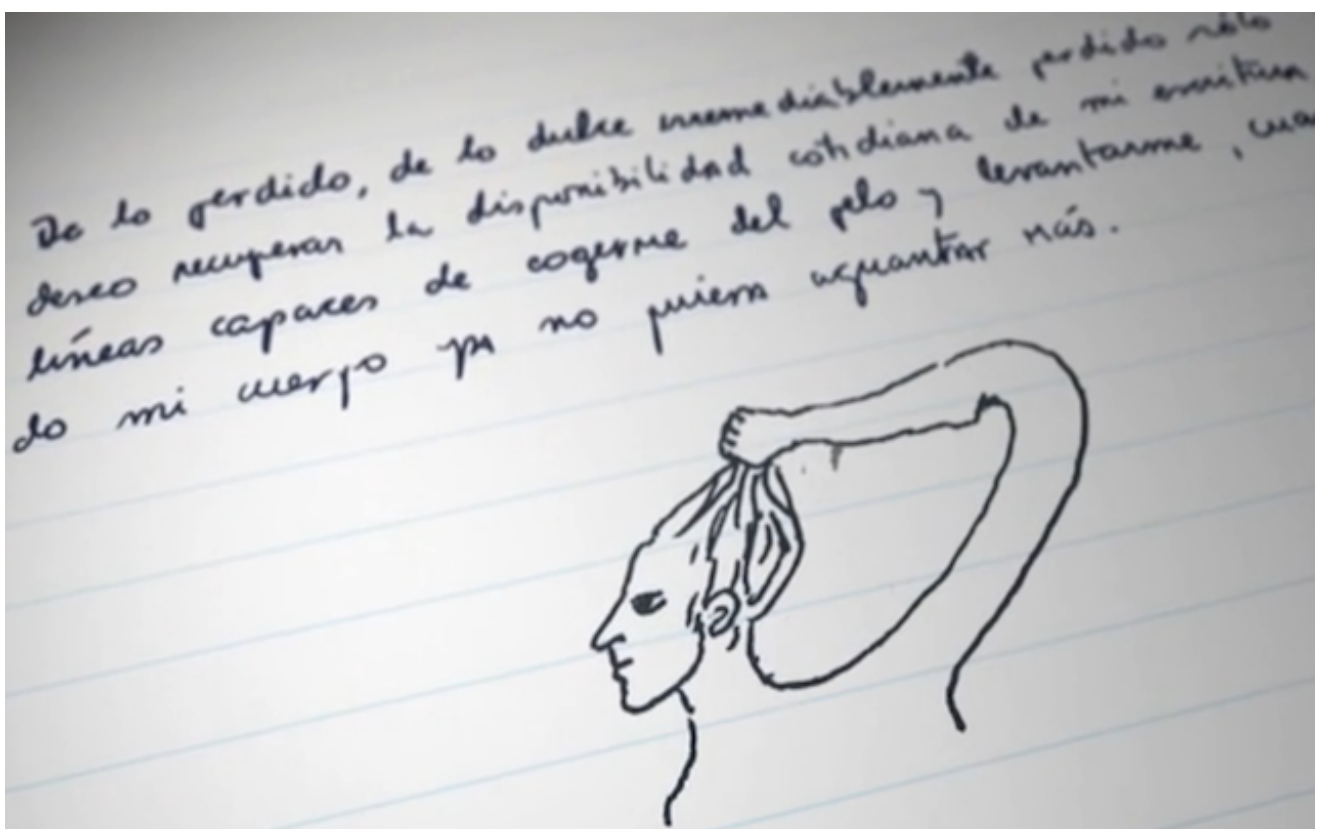 De lo perdido, de lo dulce irremediablemente perdido sólo
deseo recuperar la disponibilidad cotidiana de mi escritura
líneas capaces de cogerme del pelo y levantarme, cuan
do mi cuerpo ya no quiera aguantar más.